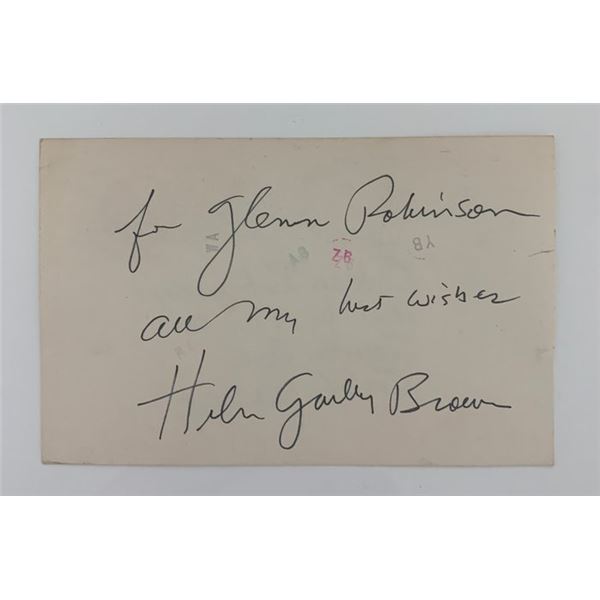 for Glenn Robinson
all my best wishes
Helen Gurley Brown
WA
ZB
YB